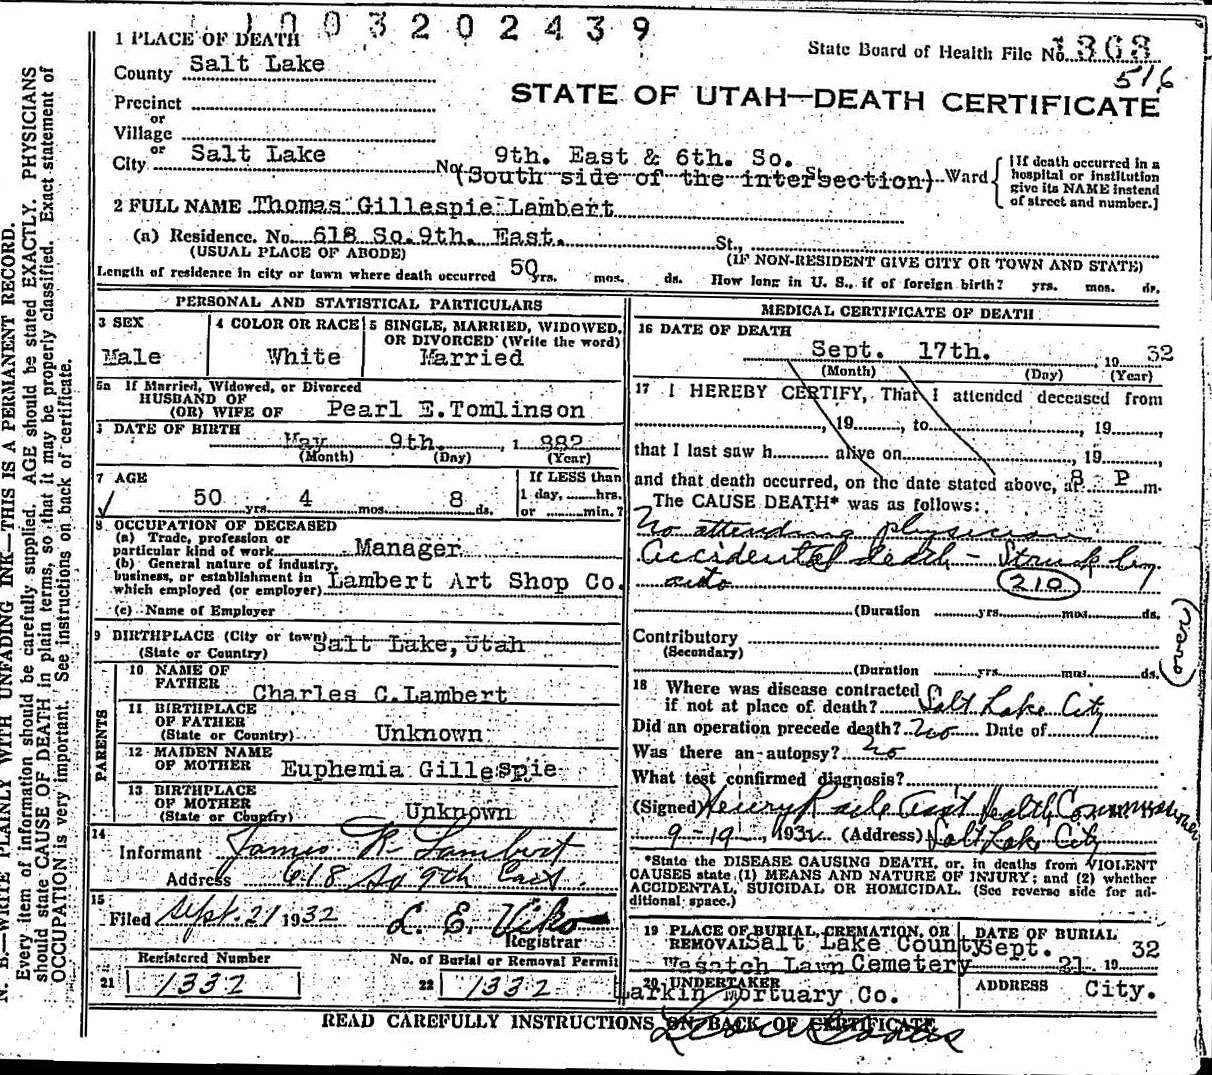 1003202439
1 PLACE OF DEATH
State Board of Health File No. 1363
516
County Salt Lake
STATE OF UTAH—DEATH CERTIFICATE
Precinct
or
Village
or
City Salt Lake
No. 9th. East & 6th. So.
(South side of the intersection) St. Ward
[If death occurred in a
hospital or institution
give its NAME instead
of street and number.]
2 FULL NAME Thomas Gillespie Lambert
(a) Residence. No. 618 So. 9th. East. St.,
(USUAL PLACE OF ABODE) (IF NON-RESIDENT GIVE CITY OR TOWN AND STATE)
Length of residence in city or town where death occurred 50 yrs. mos. ds. How long in U. S., if of foreign birth? yrs. mos. ds.
PERSONAL AND STATISTICAL PARTICULARS
3 SEX
Male
4 COLOR OR RACE
White
5 SINGLE, MARRIED, WIDOWED,
OR DIVORCED (Write the word)
Married
5a If Married, Widowed, or Divorced
HUSBAND OF
(OR) WIFE OF Pearl E. Tomlinson
DATE OF BIRTH
May 9th. 1 882
(Month) (Day) (Year)
7 AGE
50 yrs. 4 mos. 8 ds.
If LESS than
1 day, hrs.
or min.?
8 OCCUPATION OF DECEASED
(a) Trade, profession or
particular kind of work Manager
(b) General nature of industry,
business, or establishment in
which employed (or employer) Lambert Art Shop Co.
(c) Name of Employer
9 BIRTHPLACE (City or town) Salt Lake, Utah
(State or Country)
PARENTS
10 NAME OF
FATHER Charles C. Lambert
11 BIRTHPLACE
OF FATHER
(State or Country) Unknown
12 MAIDEN NAME
OF MOTHER Euphemia Gillespie
13 BIRTHPLACE
OF MOTHER
(State or Country) Unknown
14
Informant James R. Lambert
Address 618 So 9th East.
15
Filed Sept. 21 1932 L. E. Viko
Registrar
Registered Number
21 1332
No. of Burial or Removal Permit
22 1332
MEDICAL CERTIFICATE OF DEATH
16 DATE OF DEATH
Sept. 17th. , 19 32
(Month) (Day) (Year)
17 I HEREBY CERTIFY, That I attended deceased from
, 19 , to , 19 ,
that I last saw h alive on , 19 ,
and that death occurred, on the date stated above, at 8 P m.
The CAUSE DEATH* was as follows:
No attending physician
Accidental death - Struck by
auto 210
(Duration yrs. mos. ds.
Contributory
(Secondary)
(Duration yrs. mos. ds.
(over)
18 Where was disease contracted
if not at place of death? Salt Lake City
Did an operation precede death? No Date of
Was there an autopsy? No
What test confirmed diagnosis?
(Signed) Henry Raile Asst Health Commissioner
9-19-, 1932 (Address) Salt Lake City
*State the DISEASE CAUSING DEATH, or, in deaths from VIOLENT
CAUSES state (1) MEANS AND NATURE OF INJURY; and (2) whether
ACCIDENTAL, SUICIDAL OR HOMICIDAL. (See reverse side for ad-
ditional space.)
19 PLACE OF BURIAL, CREMATION, OR
REMOVAL Salt Lake County
Wasatch Lawn Cemetery
DATE OF BURIAL
Sept. 21 19 32
20 UNDERTAKER
Larkin Mortuary Co.
ADDRESS City.
READ CAREFULLY INSTRUCTIONS ON BACK OF CERTIFICATE
N. B.—WRITE PLAINLY WITH UNFADING INK—THIS IS A PERMANENT RECORD.
Every item of information should be carefully supplied. AGE should be stated EXACTLY. PHYSICIANS
should state CAUSE OF DEATH in plain terms, so that it may be properly classified. Exact statement of
OCCUPATION is very important. See instructions on back of certificate.